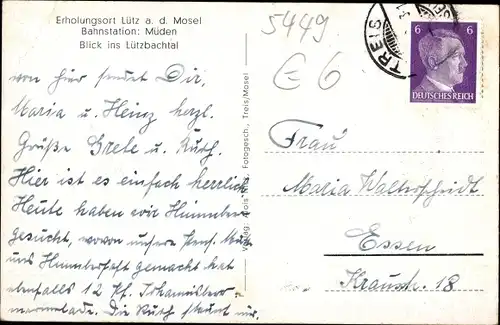 Erholungsort Lütz a. d. Mosel
Bahnstation: Müden
Blick ins Lützbachtal
5449
E6
TREIS
6 6
DEUTSCHES REICH
von hier sendet Dir,
Maria u. Heinz herzl.
Grüße Grete u. Ruth.
Hier ist es einfach herrlich
Heute haben wir Himbee
gesucht, wovon unsere
und Himbeersaft gemacht hat
ebenfalls 12 Pf. Johannisbeer-
marmelade. Die Ruth
Fotogesch., Treis/Mosel
Frau
Maria Walterscheidt
Essen
Kraustr. 18